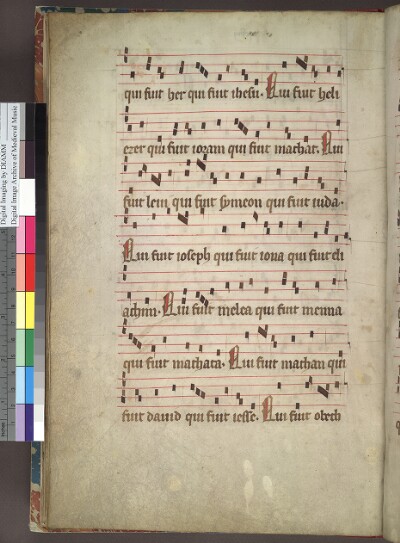 qui fuit her qui fuit ihesu. Qui fuit heli
ezer qui fuit ioram qui fuit machat. Qui
fuit leui, qui fuit symeon qui fuit iuda.
Qui fuit ioseph qui fuit iona qui fuit eli
achim. Qui fuit melea qui fuit menna
qui fuit machata. Qui fuit mathan qui
fuit dauid qui fuit iesse. Qui fuit obeth
Digital Imaging by DIAMM
Digital Image Archive of Medieval Music